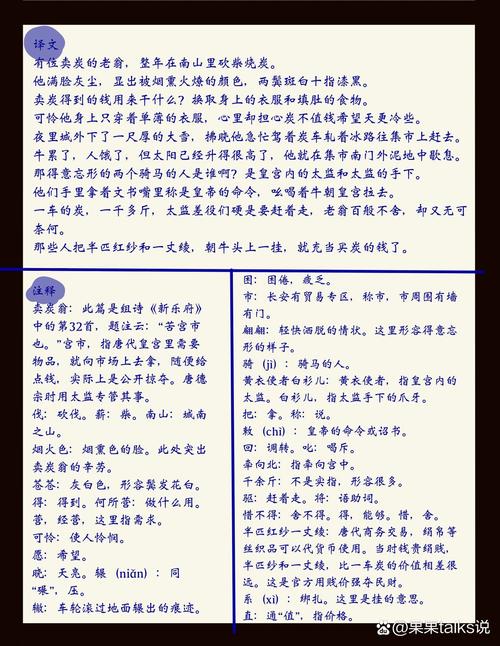 译文
有位卖炭的老翁，整年在南山里砍柴烧炭。
他满脸灰尘，显出被烟熏火燎的颜色，两鬓斑白十指漆黑。
卖炭得到的钱用来干什么？换取身上的衣服和填肚的食物。
可怜他身上只穿着单薄的衣服，心里却担心炭不值钱希望天更冷些。
夜里城外下了一尺厚的大雪，拂晓他急忙驾着炭车轧着冰路往集市上赶去。
牛累了，人饿了，但太阳已经升得很高了，他就在集市南门外泥地中歇息。
那得意忘形的两个骑马的人是谁啊？是皇宫内的太监和太监的手下。
他们手里拿着文书嘴里称是皇帝的命令，吆喝着牛朝皇宫拉去。
一车的炭，一千多斤，太监差役们硬是要赶着走，老翁百般不舍，却又无可
奈何。
那些人把半匹红纱和一丈绫，朝牛头上一挂，就充当买炭的钱了。
注释
卖炭翁：此篇是组诗《新乐府》
中的第32首，题注云：“苦宫市
也。”宫市，指唐代皇宫里需要
物品，就向市场上去拿，随便给
点钱，实际上是公开掠夺。唐德
宗时用太监专管其事。
伐：砍伐。薪：柴。南山：城南
之山。
烟火色：烟熏色的脸。此处突出
卖炭翁的辛劳。
苍苍：灰白色，形容鬓发花白。
得：得到。何所营：做什么用。
营，经营，这里指需求。
可怜：使人怜悯。
愿：希望。
晓：天亮。辗（niǎn）：同
“碾”，压。
辙：车轮滚过地面辗出的痕迹。
困：困倦，疲乏。
市：长安有贸易专区，称市，市周围有墙
有门。
翩翩：轻快洒脱的情状。这里形容得意忘
形的样子。
骑（jì）：骑马的人。
黄衣使者白衫儿：黄衣使者，指皇宫内的
太监。白衫儿：指太监手下的爪牙。
把：拿。称：说。
敕（chì）：皇帝的命令或诏书。
回：调转。叱：喝斥。
牵向北：指牵向宫中。
千余斤：不是实指，形容很多。
驱：赶着走。将：语助词。
惜不得：舍不得。得，能够。惜，舍。
半匹红纱一丈绫：唐代商务交易，绢帛等
丝织品可以代货币使用。当时钱贵绢贱，
半匹纱和一丈绫，比一车炭的价值相差很
远。这是官方用贱价强夺民财。
系（xì）：绑扎。这里是挂的意思。
直：通“值”，指价格。
@果果talks说